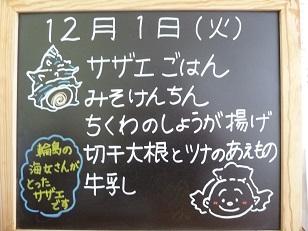 12月1日(火)
サザエごはん
みそけんちん
ちくわのしょうが揚げ
切干大根とツナのあえもの
牛乳
輪島の
海女さんが
とった
サザエ
です